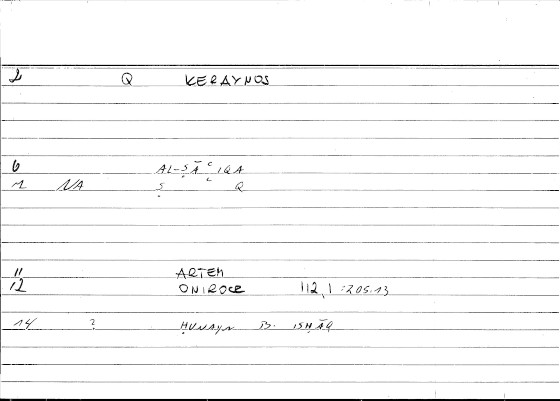 2 Q KERAYNOS
6 AL-ṢĀʿIQA
7 NA Ṣ ʿ Q
11 ARTEM
12 ONIROCR 112,1 :205.13
14 ? ḤUNAYN B. ISḤĀQ